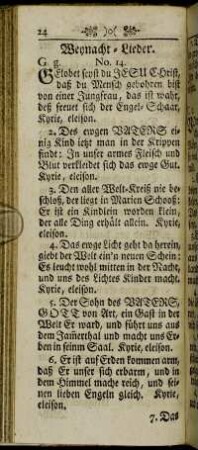 24
Weynacht-Lieder.
G g. No. 14.
GElobet seyst du JESU CHrist,
daß du Mensch gebohren bist
von einer Jungfrau, das ist wahr,
deß freuet sich der Engel-Schaar,
Kyrie, eleison.
2. Des ewgen VATERS ei-
nig Kind ietzt man in der Krippen
findt: In unser armes Fleisch und
Blut verkleidet sich das ewge Gut.
Kyrie, eleison.
3. Den aller Welt-Kreiß nie be-
schloß, der liegt in Marien Schooß:
Er ist ein Kindlein worden klein,
der alle Ding erhält allein. Kyrie,
eleison.
4. Das ewge Licht geht da herein,
giebt der Welt ein'n neuen Schein:
Es leucht wohl mitten in der Nacht,
und uns des Lichtes Kinder macht.
Kyrie, eleison.
5. Der Sohn des VATERS,
GOTT von Art, ein Gast in der
Welt Er ward, und führt uns aus
dem Jam̃erthal und macht uns Er-
ben in seinm Saal. Kyrie, eleison.
6. Er ist auf Erden kommen arm,
daß Er unser sich erbarm, und in
dem Himmel mache reich, und sei-
nen lieben Engeln gleich. Kyrie,
eleison.
7. Das